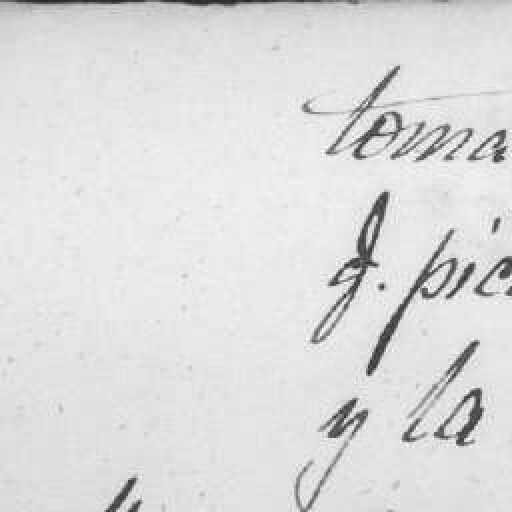 toma
J. pic
y la